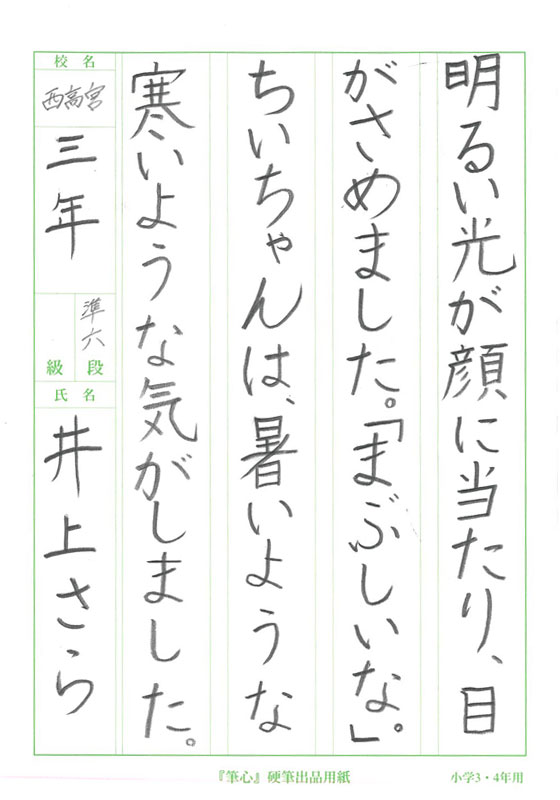 明るい光が顔に当たり、目
がさめました。「まぶしいな。」
ちいちゃんは、暑いような
寒いような気がしました。
校名
西高宮
三年
準六
段
級
氏名
井上さら
『筆心』硬筆出品用紙
小学3・4年用